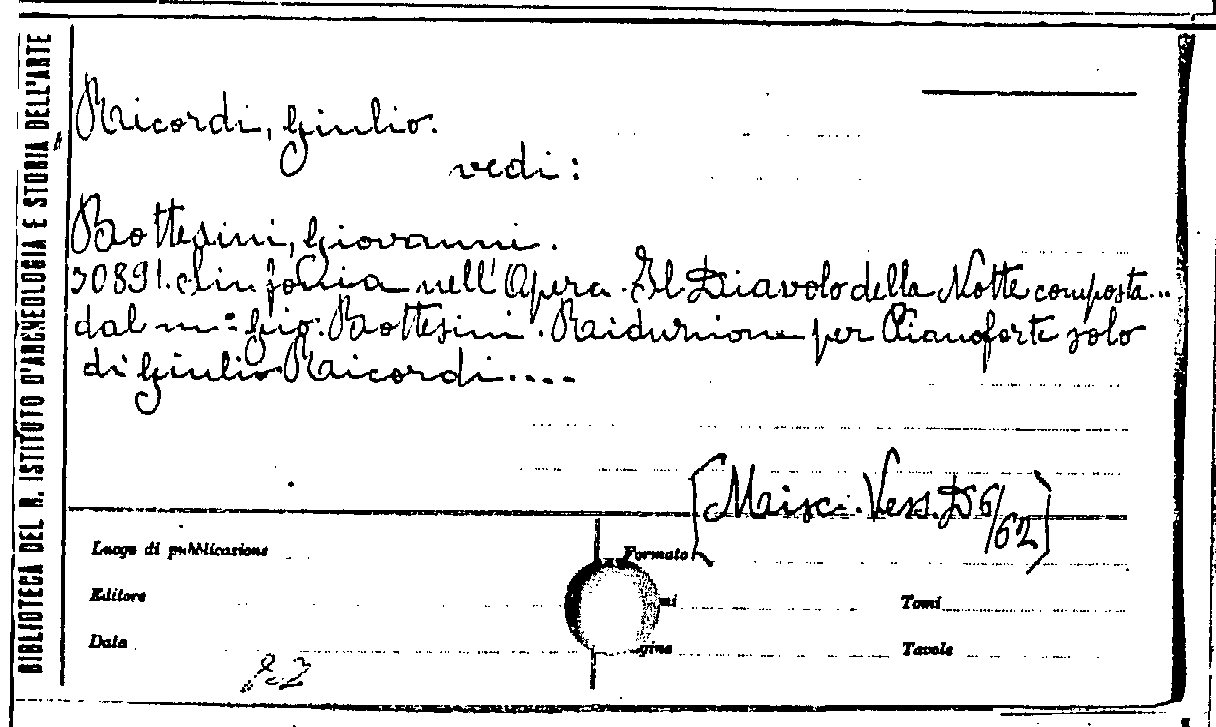 BIBLIOTECA DEL R. ISTITUTO D'ARCHEOLOGIA E STORIA DELL'ARTE
Ricordi, Giulio.
vedi:
Bottesini, Giovanni.
30891. Sinfonia nell'Opera. Il Diavolo della Notte composta...
dal m.º Gio: Bottesini. Riduzione per Pianoforte solo
di Giulio Ricordi....
[Misc. Vess. D 6/62]
Luogo di pubblicazione
Formato
Editore
Tomi
Data
Tavole